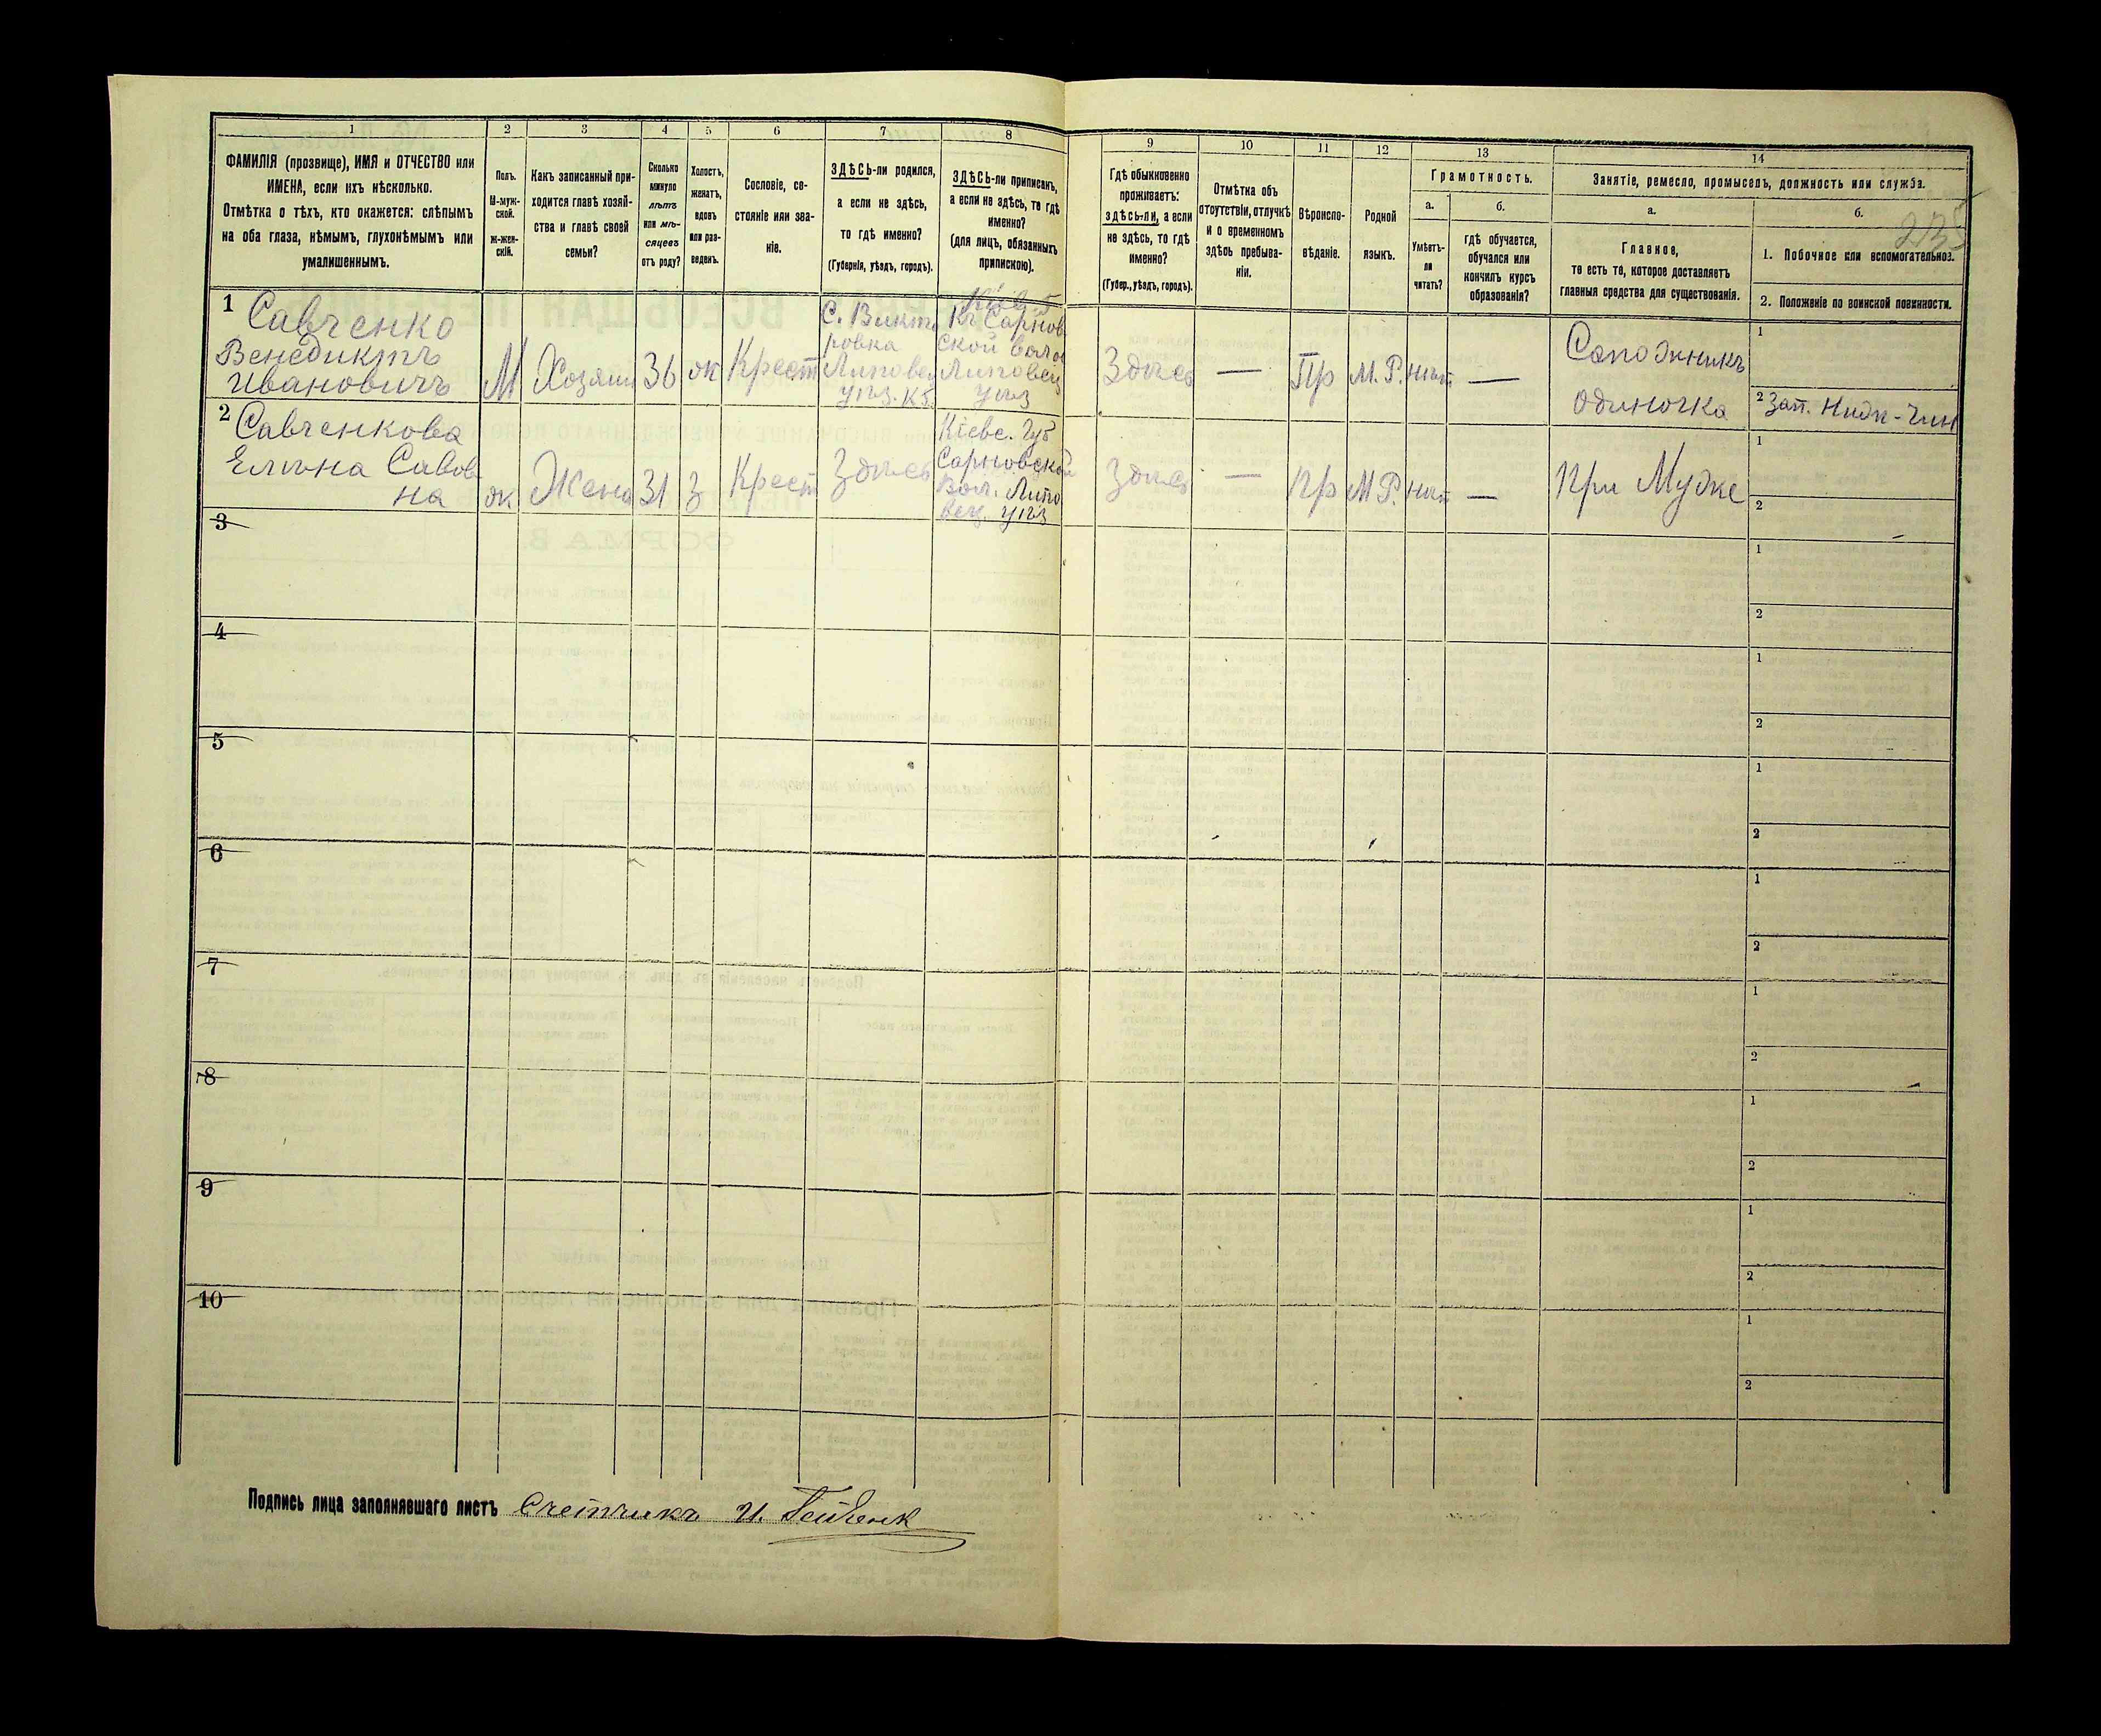 1 2 3 4 5 6 7 8 9 10 11 12 13 14
ФАМИЛІЯ (прозвище), ИМЯ и ОТЧЕСТВО или
ИМЕНА, если ихъ нѣсколько.
Отмѣтка о тѣхъ, кто окажется: слѣпымъ
на оба глаза, нѣмымъ, глухонѣмымъ или
умалишеннымъ.
Полъ.
М-муж-
ской.
ж-жен-
скій.
Какъ записанный при-
ходится главѣ хозяй-
ства и главѣ своей
семьи?
Сколько
минуло
лѣтъ
или мѣ-
сяцевъ
отъ роду?
Холостъ,
женатъ,
вдовъ
или раз-
веденъ.
Сословіе, со-
стояніе или зва-
ніе.
ЗДѢСЬ-ли родился,
а если не здѣсь,
то гдѣ именно?
(Губернія, уѣздъ, городъ).
ЗДѢСЬ-ли приписанъ,
а если не здѣсь, то гдѣ
именно?
(для лицъ, обязанныхъ
припискою).
Гдѣ обыкновенно
проживаетъ:
здѣсь-ли, а если
не здѣсь, то гдѣ
именно?
(Губер., уѣздъ, городъ).
Отмѣтка объ
отсутствіи, отлучкѣ
и о временномъ
здѣсь пребыва-
ніи.
Вѣроиспо-
вѣданіе.
Родной
языкъ.
Грамотность.
а.
Умѣетъ-
ли
читать?
б.
гдѣ обучается,
обучался или
кончилъ курсъ
образованія?
Занятіе, ремесло, промыселъ, должность или служба.
а.
Главное,
то есть то, которое доставляетъ
главныя средства для существованія.
б.
1. Побочное или вспомогательное.
2. Положеніе по воинской повинности.
1 Савченко
Венедиктъ
Ивановичъ
М
Хозяин
36
ж
Крест
С. Викто
ровка
Липовец
уѣз. К.
Сарнов
ской воло
Липовец
уѣз
Здѣсь
—
Пр
М. Р.
нѣт
—
Сапожникъ
Одиночка
1
2 Зап. Нижн-Чин
2 Савченкова
Елена Савов
на
ж
Жена
31
З
Крест
Здѣсь
Кіевс. Губ
Сарновской
Вол. Липо
вец. уѣз
Здѣсь
—
Пр
М Р.
нѣт
—
При Муже
1
2
3
1
2
4
1
2
5
1
2
6
1
2
7
1
2
8
1
2
9
1
2
10
1
2
Подпись лица заполнявшаго листъ Счетчикъ И.